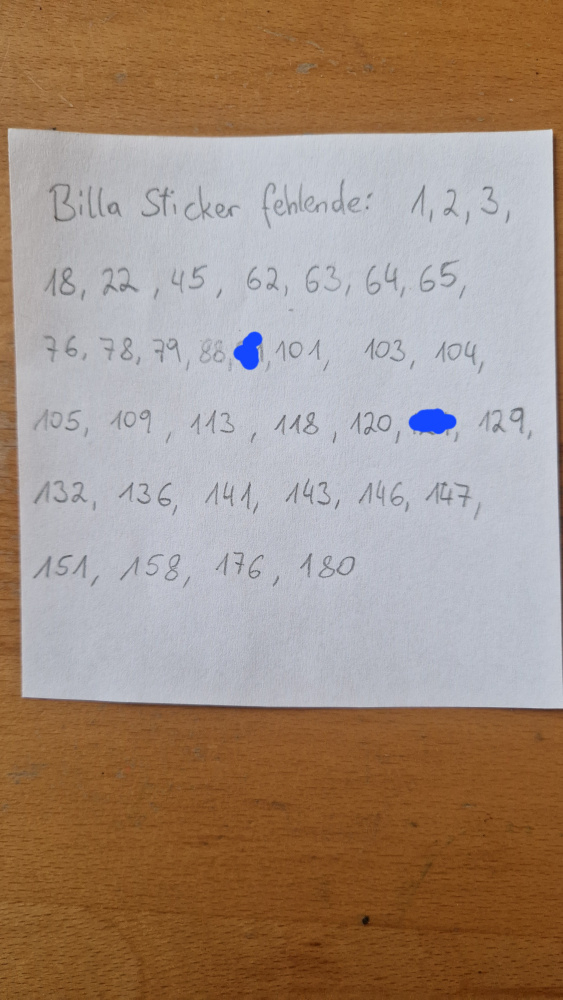 Billa Sticker fehlende: 1, 2, 3,
18, 22, 45, 62, 63, 64, 65,
76, 78, 79, 88, 101, 103, 104,
105, 109, 113, 118, 120, 129,
132, 136, 141, 143, 146, 147,
151, 158, 176, 180